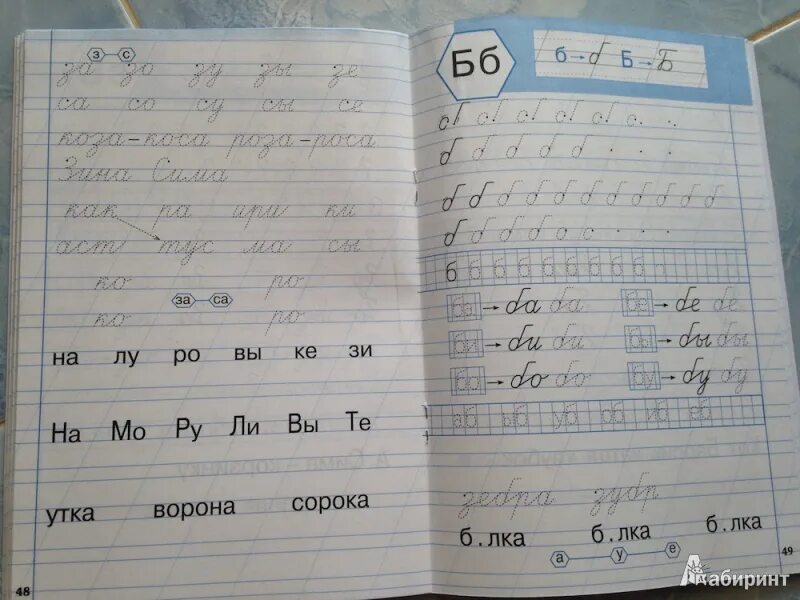 з с
за зо зу зы зе
са со су сы се
коза-коса роза-роса
Зина Сима
как ра ири ки
аст тус ма сы
ко ро
за са
ко ро
на лу ро вы ке зи
На Мо Ру Ли Вы Те
утка ворона сорока
48
Бб
б→б Б→Б
б б б б б
б б б б б б б б б б
б б б б а с
б б б б б б б б б
ба → ба ба бе → бе бе
би → би би бы → бы бы
бо → бо бо бу → бу бу
аб ыб уб об иб еб
зебра зубр
б.лка б.лка б.лка
а у е
49
Лабиринт